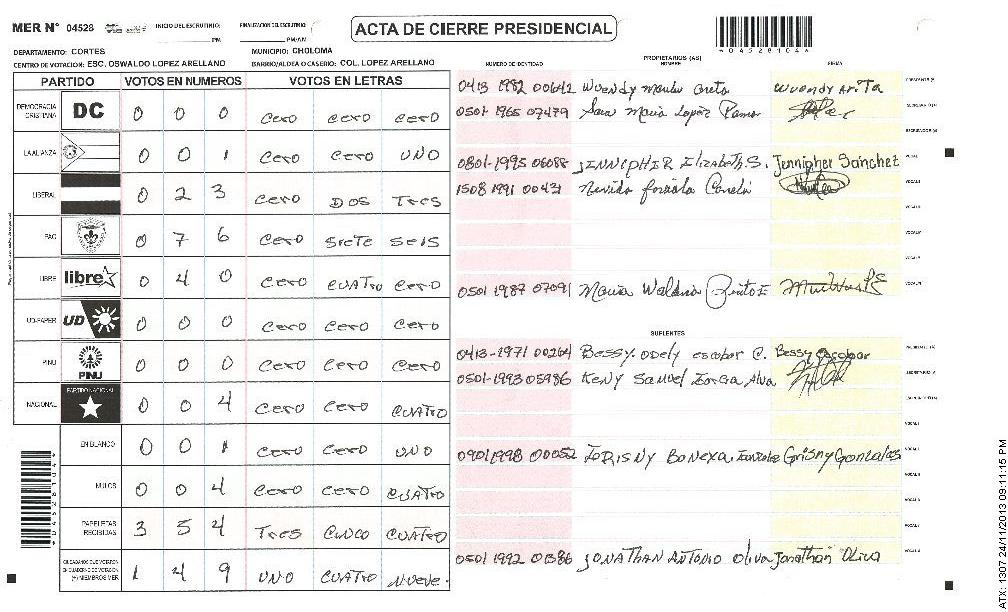 MER N° 04528 INICIO DEL ESCRUTINIO: PM FINALIZACION DEL ESCRUTINIO: PM/AM
ACTA DE CIERRE PRESIDENCIAL
DEPARTAMENTO: CORTES MUNICIPIO: CHOLOMA
CENTRO DE VOTACION: ESC. OSWALDO LOPEZ ARELLANO BARRIO/ALDEA O CASERIO: COL. LOPEZ ARELLANO
PARTIDO VOTOS EN NUMEROS VOTOS EN LETRAS
DEMOCRACIA CRISTIANA DC 0 0 0 cero cero cero
LA ALIANZA 0 0 1 cero cero UNO
LIBERAL 0 2 3 cero DOS Tres
PAC 0 7 6 cero siete seis
LIBRE libre 0 4 0 cero cuatro cero
UD-FAPER UD 0 0 0 cero cero cero
PINU PINU 0 0 0 cero cero cero
NACIONAL PARTIDO NACIONAL 0 0 4 cero cero cuatro
EN BLANCO 0 0 1 cero cero uno
NULOS 0 0 4 cero cero cuatro
PAPELETAS RECIBIDAS 3 5 4 Tres cinco cuatro
CIUDADANOS QUE VOTARON EN CUADERNO DE VOTACION (+) MIEMBROS MER 1 4 9 uno cuatro nueve.
NUMERO DE IDENTIDAD PROPIETARIOS (AS) NOMBRE FIRMA
0413 1982 00642 Wuendy Arita
0501-1965 07479 Sara Maria Lopez Ramos
0801-1995 06088 JENNIPHER ElizabethS. Jennipher Sanchez
1508 1991 0043
0501 1987 07091 Maria Waldina
SUPLENTES
0413-1971 00264 Bessy Odely escobar C. Bessy Escobar
0501-1993 05986 Keny Samuel
0901 1998 00052 Grisny Gonzales
0501 1992 01386 JONATHAN ANTONIO Oliva Jonathan Oliva
*04528104*
ATX: 1307.24/11/2013 09:11:15 PM